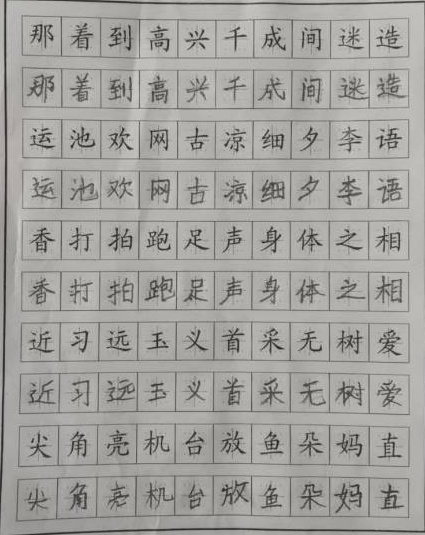 那着到高兴千成间迷造
那着到高兴千成间迷造
运池欢网古凉细夕李语
运池欢网古凉细夕李语
香打拍跑足声身体之相
香打拍跑足声身体之相
近习远玉义首采无树爱
近习远玉义首采无树爱
尖角亮机台放鱼朵妈直
尖角亮机台放鱼朵妈直